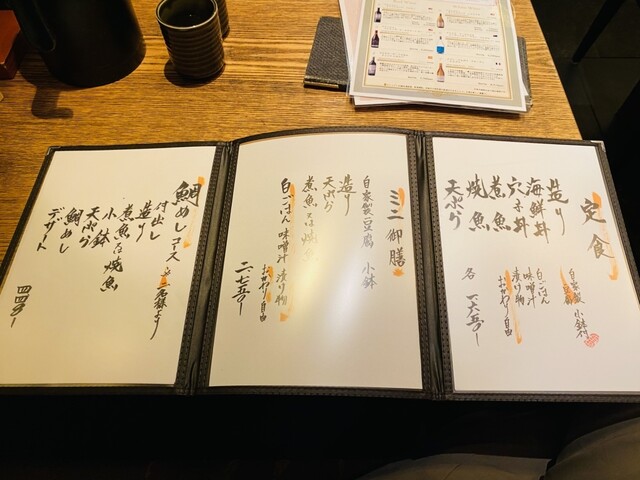 定食
造り
海鮮丼
穴子丼
煮魚
焼魚
天ぷら
自家製豆腐 小鉢付
白ごはん
味噌汁
漬け物
おかわり自由
各 一、六五〇ー
ミニ御膳
自家製豆腐 小鉢
造り
天ぷら
煮魚又は焼魚
白ごはん 味噌汁 漬け物
おかわり自由
二、七五〇ー
鯛めしコース 二名様より
付出し
造り
煮魚又は焼魚
小鉢
天ぷら
鯛めし
デザート
四四〇〇ー